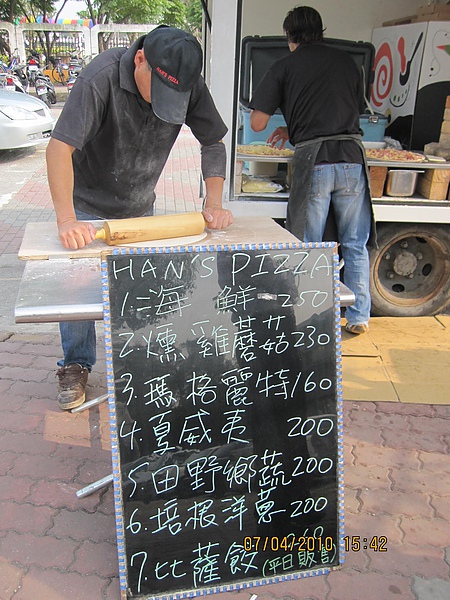 HAN'S PIZZA
HAN'S PIZZA
1. 海鮮 250
2. 燻雞蘑菇 230
3. 瑪格麗特 160
4. 夏威夷 200
5. 田野鄉蔬 200
6. 培根洋蔥 200
7. 比薩餃
(平日販售)
07/04/2010 15:42